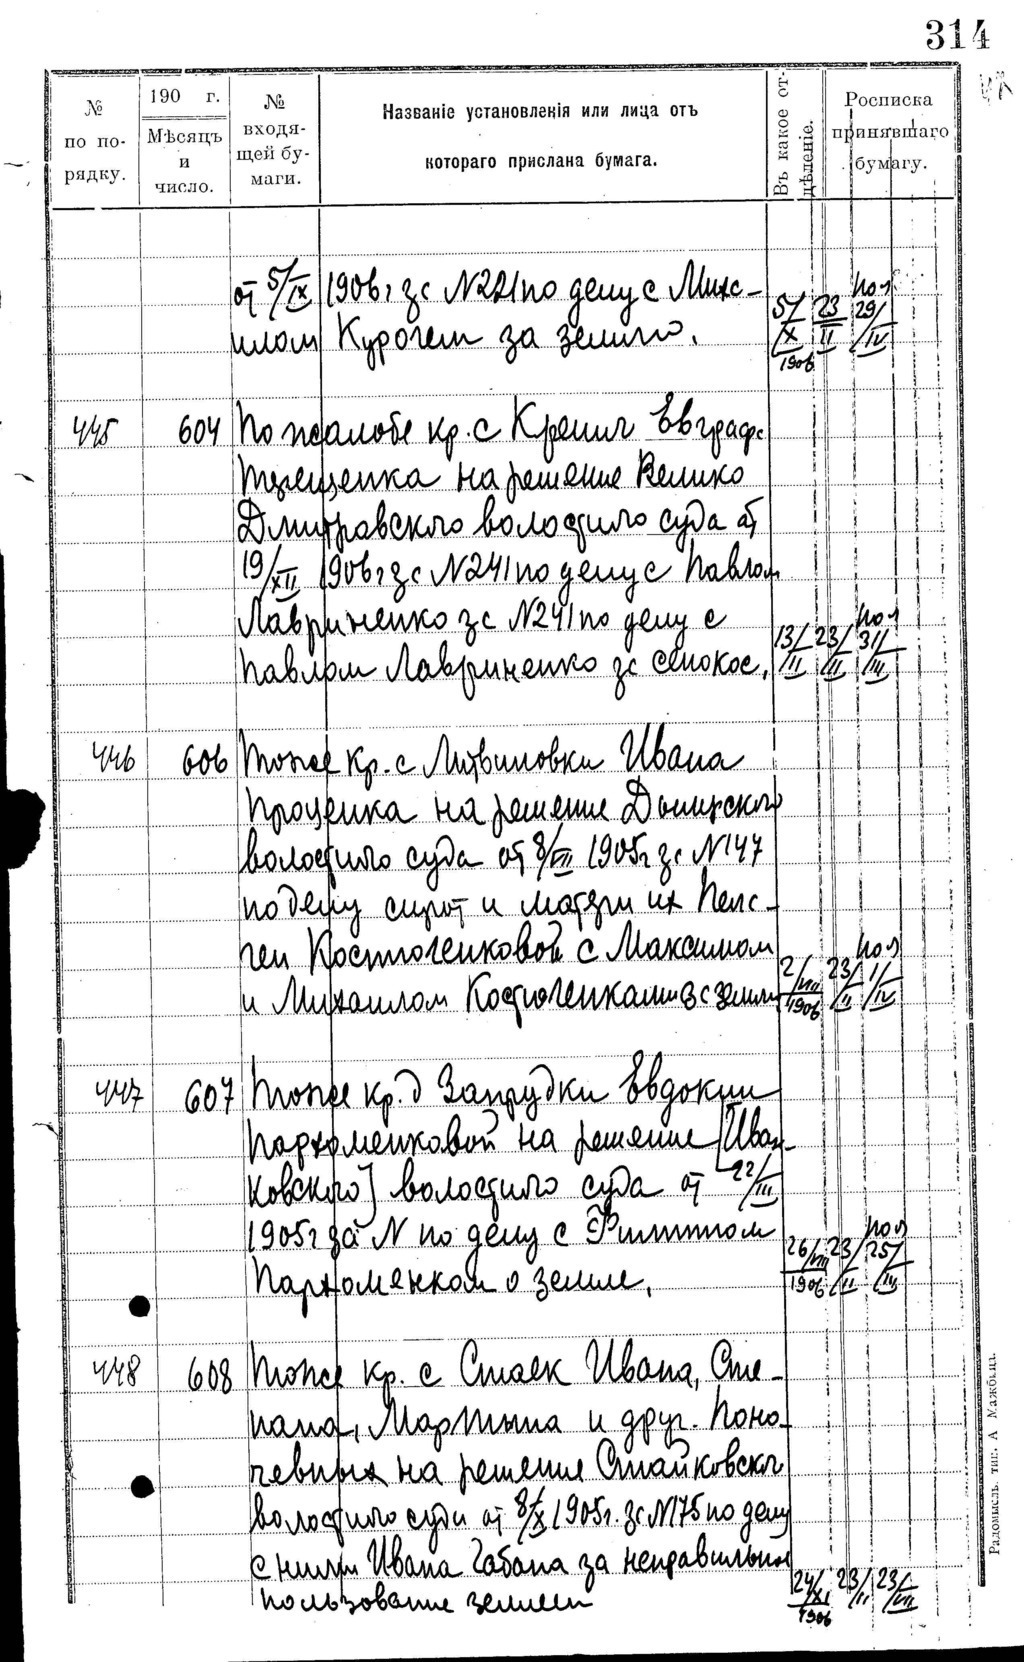 314
№ по по-рядку.
190 г. Мѣсяцъ и число.
№ входя-щей бу-маги.
Названіе установленія или лица отъ
котораго прислана бумага.
Въ какое от-дѣленіе.
Росписка принявшаго бумагу.
от 5/IX 1906 г за N221 по делу с Миха-
илом Курочем за землю.
5/X 1906 23/II пол 29/IV
445 604 По жалобе кр. с Евграфа
на решение Велико
Дмитровского волостного суда от
19/XII 1906 г за N241 по делу с Павлом
Лавриненко за N241 по делу с
Павлом Лавриненко за сенокос.
13/II 23/II пол 31/III
446 606 Тоже кр. с Литвиновки Ивана
Проценка на решение Дымирского
волостного суда от 8/VII 1905 г за N147
по делу сирот и матери их Пела-
геи Костюченковой с Максимом
и Михаилом Костюченками за землю
2/VIII 1906 23/II пол 1/IV
447 607 Тоже кр. д Запрудки Евдокии
Пархоменковой на решение [Иван-
ковского] волостного суда от 22/III
1905 г за N по делу с Филиппом
Пархоменком о земле.
26/VIII 1906 23/II пол 25/III
448 608 Тоже кр. с Стаек Ивана, Сте-
пана, Мартына и друг. Поно-
чевных на решение Стайковског
волостного суда от 8/X 1905 г. за N175 по делу
с ними Ивана Чабана за неправильное
пользование землей
24/XI 1906 23/II 23/VIII
Радомысль. тип. А Мажбица.